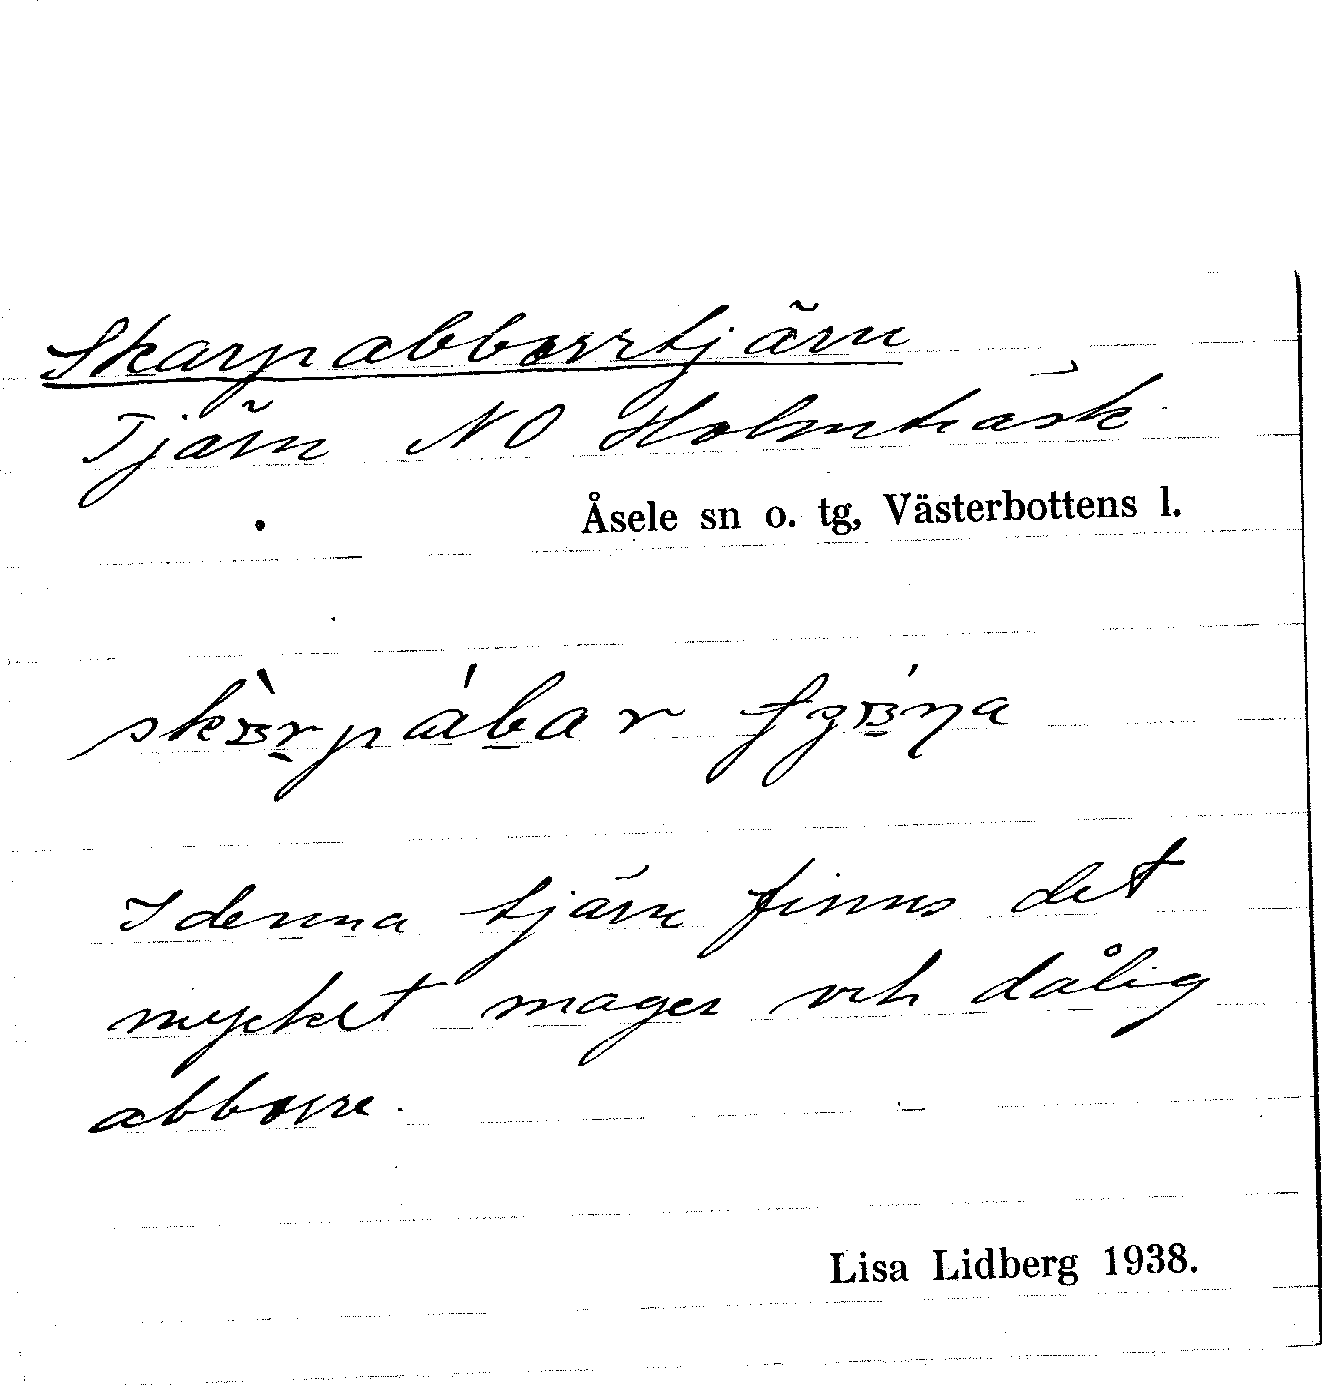 Skarpabborrtjärn
Tjärn NO Holmträsk
Åsele sn o. tg, Västerbottens l.
I denna tjärn finns det
mycket mager och dålig
abborre.
Lisa Lidberg 1938.